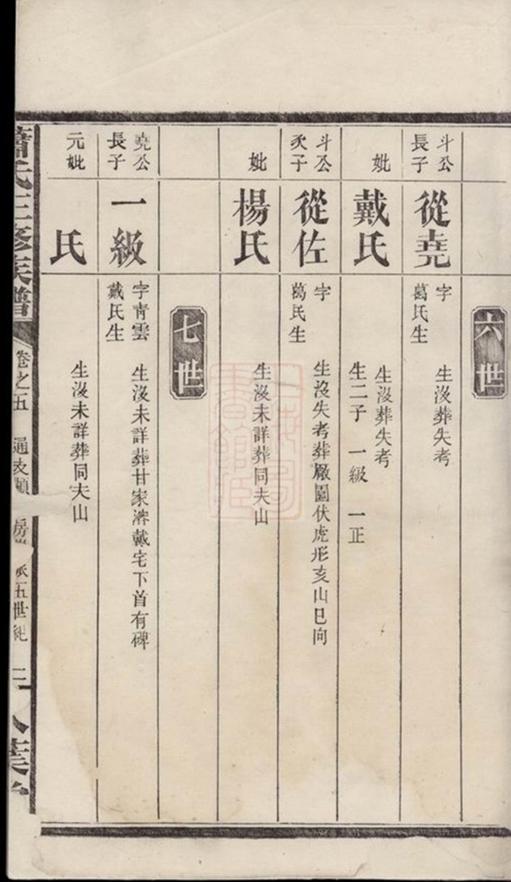 六世
斗公
長子
從堯
字
葛氏生
生沒葬失考
妣
戴氏
生沒葬失考
生二子 一級 一正
斗公
次子
從佐
字
葛氏生
生沒失考葬廠園伏虎形亥山巳向
妣
楊氏
生沒未詳葬同夫山
七世
堯公
長子
一級
字青雲
戴氏生
生沒未詳葬甘家灣戴宅下首有碑
元妣
氏
生沒未詳葬同夫山
蕭氏三修族譜
卷之五
五世紀